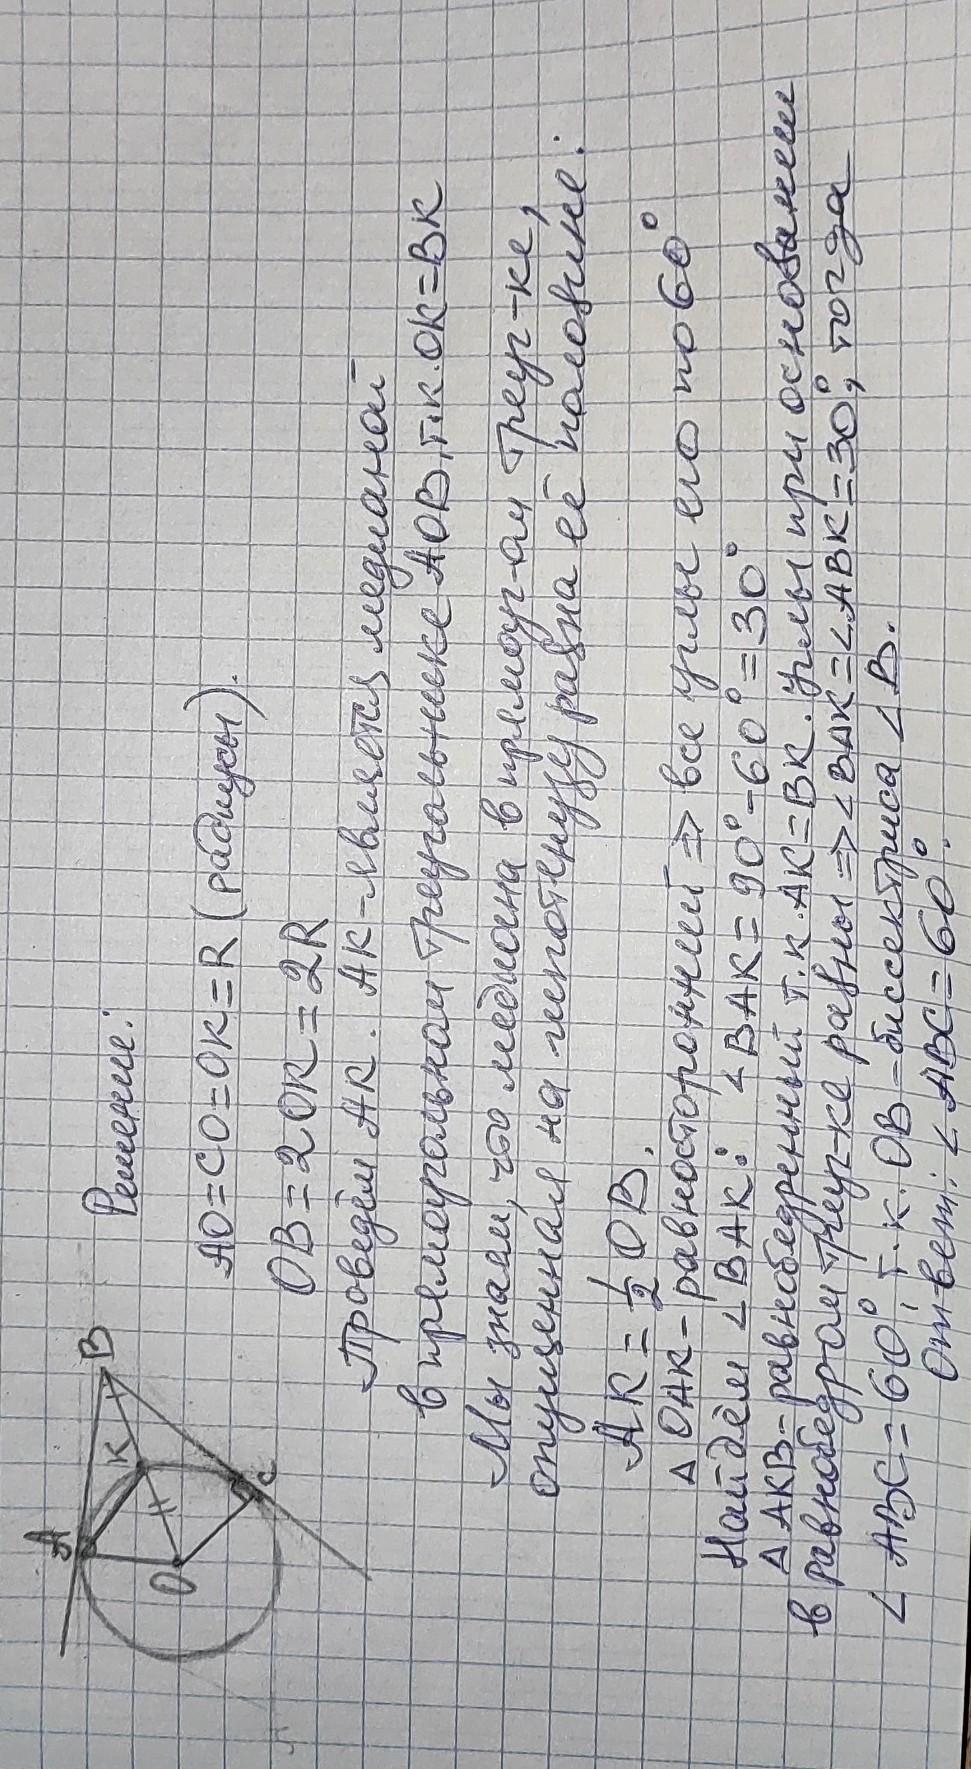 A
B
K
O
C
Решение:
AO=CO=OK=R (радиусы).
OB=2OK=2R
Проведём АК. АК-является медианой
в прямоугольном треугольнике АОВ, т.к. ОК=ВК
Мы знаем, что медиана в прямоуг-ом треуг-ке,
опущенная на гипотенузу равна её половине:
AK=1/2 OB.
Δ ОАК-равносторонний => все углы его по 60°
Найдём <BAK: <BAK=90°-60°=30°
Δ АКВ-равнобедренный т.к. АК=ВК. Углы при основании
в равнобедром треуг-ке равны => <BAK=<ABK=30°, тогда
<ABC=60°, т.к. ОВ-биссектриса <B.
Ответ: <ABC=60°.